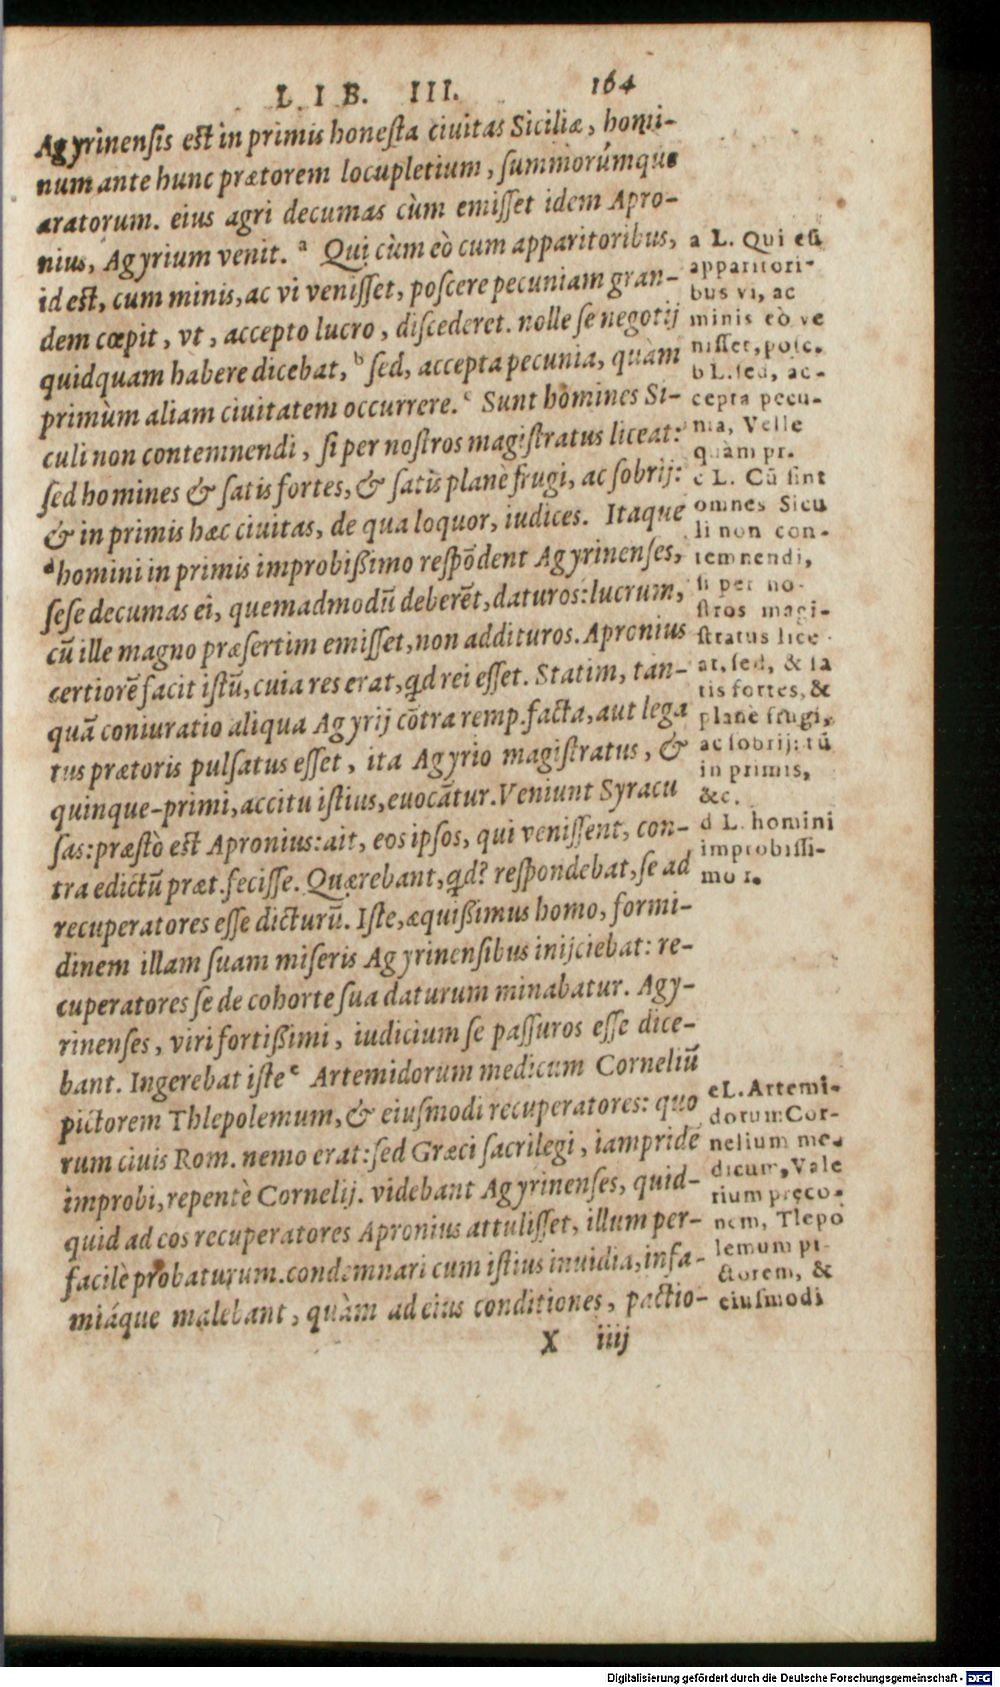 LIB. III. 164
Agyrinensis est in primis honesta ciuitas Siciliæ, homi-
num ante hunc prætorem locupletium, summorúmque
aratorum. eius agri decumas cùm emisset idem Apro-
nius, Agyrium venit. a Qui cùm eò cum apparitoribus,
id est, cum minis, ac vi venisset, poscere pecuniam gran-
dem cœpit, vt, accepto lucro, discederet. nolle se negotij
quidquam habere dicebat, b sed, accepta pecunia, quàm
primùm aliam ciuitatem occurrere. c Sunt homines Si-
culi non contemnendi, si per nostros magistratus liceat:
sed homines & satis fortes, & satis planè frugi, ac sobrij:
& in primis hæc ciuitas, de qua loquor, iudices. Itaque
d homini in primis improbißimo respõdent Agyrinenses,
sese decumas ei, quemadmodũ deberẽt, daturos: lucrum,
cũ ille magno præsertim emisset, non addituros. Apronius
certiorẽ facit istũ, cuia res erat, qd rei esset. Statim, tan-
quã coniuratio aliqua Agyrij cõtra remp. facta, aut lega
tus prætoris pulsatus esset, ita Agyrio magistratus, &
quinque-primi, accitu istius, euocãtur. Veniunt Syracu
sas: præstò est Apronius: ait, eos ipsos, qui venissent, con-
tra edictũ præt. fecisse. Quærebant, qd? respondebat, se ad
recuperatores esse dicturũ. Iste, æquißimus homo, formi-
dinem illam suam miseris Agyrinensibus inijciebat: re-
cuperatores se de cohorte sua daturum minabatur. Agy-
rinenses, viri fortißimi, iudicium se passuros esse dice-
bant. Ingerebat iste e Artemidorum medicum Corneliũ
pictorem Thlepolemum, & eiusmodi recuperatores: quo
rum ciuis Rom. nemo erat: sed Græci sacrilegi, iampridẽ
improbi, repentè Cornelij. videbant Agyrinenses, quid-
quid ad eos recuperatores Apronius attulisset, illum per-
facilè probaturum. condemnari cum istius inuidia, infa-
miáque malebant, quàm ad eius conditiones, pactio-
X iiij
a L. Qui est
apparitori-
bus vi, ac
minis eò ve
nisset, posc.
b L. sed, ac-
cepta pecu-
nia, Velle
quàm pr.
c L. Cũ sint
omnes Sicu
li non con-
temnendi,
si per no-
stros magi-
stratus lice
at, sed, & sa
tis fortes, &
planè frugi,
ac sobrij: tũ
in primis,
&c.
d L. homini
improbissi-
mo r.
e L. Artemi-
dorum Cor-
nelium me-
dicum, Vale
rium pręco-
nem, Tlepo
lemum pi-
ctorem, &
eiusmodi
Digitalisierung gefördert durch die Deutsche Forschungsgemeinschaft - DFG